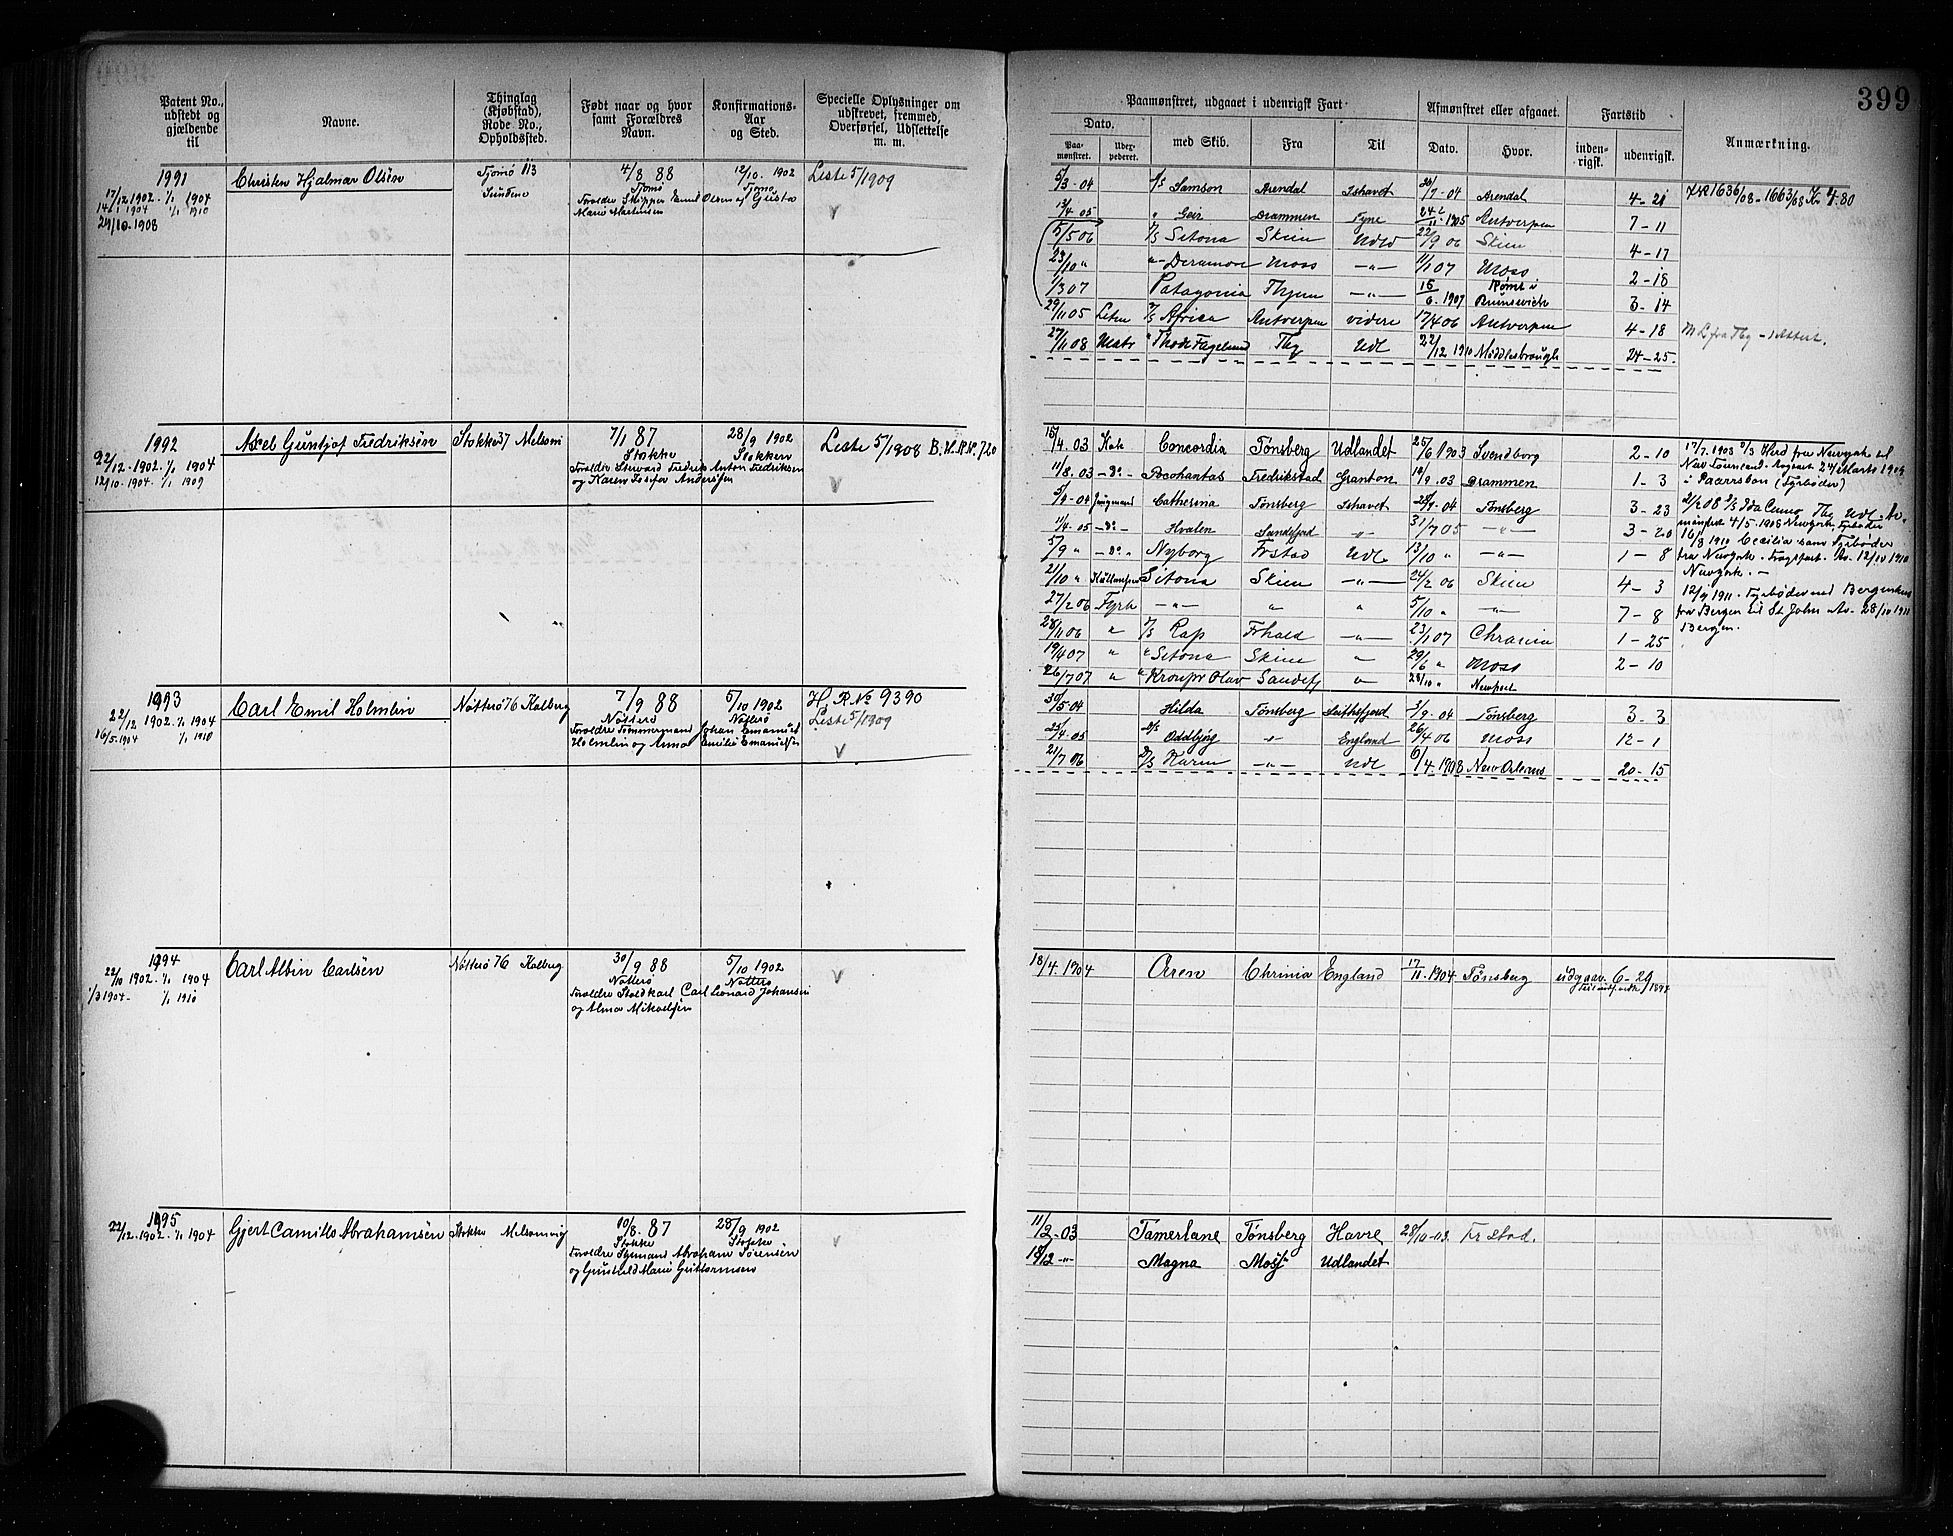 399
Patent No., udstedt og gjældende til
Navne.
Thinglag (Kjøbstad), Rode No., Opholdssted.
Født naar og hvor samt Forældres Navn.
Konfirmations-Aar og Sted.
Specielle Oplysninger om udskrevet, fremmed, Overførsel, Udslettelse m. m.
Paamønstret, udgaaet i udenrigsk Fart
Afmønstret eller afgaaet.
Fartstid
Anmærkning.
Dato.
Paa-mønstret.
med Skib.
Fra
Til
Dato.
Hvor.
inden-rigsk.
udenrigsk.
1991
17/12 1902. 1/1 1904
1/1 1910
24/10. 1908
Christen Hjalmar Olsen
Tjømø 113
4/8 88
Tjømø
12/10. 1902
Tjømø
Forældre Skipper Emil Olsen og Gusta
Marie Martinsen
Liste 5/1909
5/3-04 S/S Samson Arendal Ishavet /9-04 Arendal 4-21
13/4 05 " Geir Drammen Tyne 1905 Antwerpen 7-11
5/5 06 S/S Sitona Skien Udld 22/9 06 Skien 4-17
23/10 " Deramore Moss -"- 11/1 07 Moss 2-18
1/3 07 Patagonia Thjem -"- 1907 Rømt i Brunswick 3-14
29/11 05 Letm S/S Africa Antwerpen videre 17/4 06 Antwerpen 4-18
27/11 08 Matr Thode Fagelund Tbg Udl 22/12 1910 Middlesbrough 24-25
1992
22/12. 1902. 1/1 1904
12/10. 1904. 1/1 1909
Axel Guntjof Fredriksen
Stokke 37 Melsom
7/1 87
Stokke
28/9 1902
Stokken
Forældre Steward Fredrik Anton Fredriksen
og Karen Josefa Andersen
Liste 5/1908 B.H.R.N. 720
15/4. 03 Kok Concordia Tønsberg Udlandet 25/6 1903 Svendborg 2-10
11/8. 03 -do- Pocohantas Fredrikstad Granton 18/9. 03 Drammen 1-3
5/4-04 Jungmand Catherina Tønsberg Ishavet 04 Tønsberg 3-23
11/4. 05 -do- Hvalen Sandefjord -"- 31/7 05 -"- 3-20
5/9 " -do- Nyborg Frstad Udl. 13/10 " -"- 1-8
21/10 " Sitona Skien -"- 24/2 06 Skien 4-3
27/2 06 Fyrb -"- " " 5/10 " -"- 7-8
28/11 06 " S/S Rap Frhald -"- 23/1 07 Chrania 1-25
19/4 07 " " Sitona Skien -"- 29/6 " Moss 2-10
26/7 07 " " Kronpr Olav Sandefj -"- 28/10 " Newport
17/7. 1903 S/S Kird fra Newyork til
(Fyrbøder)
mønstret 4/5-1908 Newyork. Fyrbøder
16/8 1910 Cecilia som Fyrbøder
fra Newyork. Fragtfart. Av. 12/10 1910
Newyork. -
12/9 1911 - Fyrbøder med Bergenhus
fra Bergen til St John Av. 28/10 1911
Bergen.
1993
22/12 1902 1/1 1904
16/5. 1904 1/1 1910
Carl Emil Holmlin
Nøtterø 76 Kolberg
7/9 88
Nøtterø
5/10 1902
Nøtterø
Forældre Tømmermand Johan Emanuel
Holmlin og Anna Emilie Emanuelsen
H. R № 9390
Liste 5/1909
30/5-04 Hilda Tønsberg /9-04 Tønsberg 3-3
25/4-05 S/S Oddbjørg -"- England 26/4 06 Moss 12-1
21/7 06 S/S Karen -"- Udl 6/4. 1908 New Orleans 20-15
1994
22/10 1902. 1/1 1904
1/3 1904. 1/1 1910
Carl Albin Carlsen
Nøtterø 76 Kolberg
30/9 88
Nøtterø
5/10 1902
Nøtterø
Forældre Stoldkarl Carl Leonard Johansen
og Alma Mikaelsen
18/4. 1904 Oren Chrinia England 17/11. 1904 Tønsberg 6-29
1995
22/12. 1902. 1/1 1904
Gjert Camillo Abrahamsen
Stokke Melsomvig
10/8. 87
Stokke
28/9 1902
Stokke
Forældre Styrmand Abraham Sørensen
og Gunhild Marie Guttormsen
11/2-03 Tamerlane Tønsberg Havre 28/10-03. Fr Stad.
18/12 -"- Magna Moss Udlandet